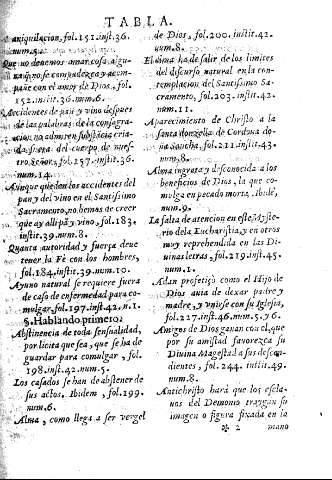 TABLA.
aniquilacion, fol.151.inst.36.
num.5.
Que no devemos amar cosa alguna, q̃
no se compadezca y acom-
pañe con el amor de Dios, fol.
152.instit.36.num.6.
Accidentes de pan y vino despues
de las palabras de la consagra-
cion no admiten substãcia cria-
da, fuera del cuerpo de nues-
tro Señor, fol.157.instit.36.
num.14.
Aunque quedan los accidentes del
pan y del vino en el Santissimo
Sacramento, no hemos de creer
que ay alli pã y vino, fol.183.
instit.39.num.8.
Quanta autoridad y fuerça deve
tener la Fè con los hombres,
fol.184.instit.39.num.10.
Ayuno natural se requiere fuera
de caso de enfermedad para co-
mulgar, fol.197.inst.42.n.1.
§. Hablando primero:
Abstinencia de toda sensualidad,
por licita que sea, que se ha de
guardar para comulgar, fol.
198.inst.42.num.5.
Los casados se han de abstener de
sus actos. Ibidem, fol.199.
num.6.
Alma, como llega a ser vergel
de Dios, fol.200.instit.42.
num.8.
El alma ha de salir de los limites
del discurso natural en la con-
templacion del Santissimo Sa-
cramento, fol.203.instit.42.
num.11.
Aparecimiento de Christo a la
santa donzella de Cordova do-
ña Sancha, fol.211.instit.43.
num.8.
Alma ingrata y desconocida a los
beneficios de Dios, la que co-
mulga en pecado morta. Ibidẽ,
num.9.
La falta de atencion en este Myste-
rio de la Eucharistia, y en otros
muy reprehendida en las Di-
vinas letras, fol.219.inst.45.
num.1.
Adan profetizò como el Hijo de
Dios avia de dexar padre y
madre, y unirse con su Iglesia,
fol.227.inst.46.num.5.y 6.
Amigos de Dios ganan con el, que
por su amistad favorezca su
Divina Magestad a sus descen-
dientes, fol.244. instit.49.
num.8.
Antichristo harà que los escla-
vos del Demonio traygan su
imagen o figura fixada en la
2 mano